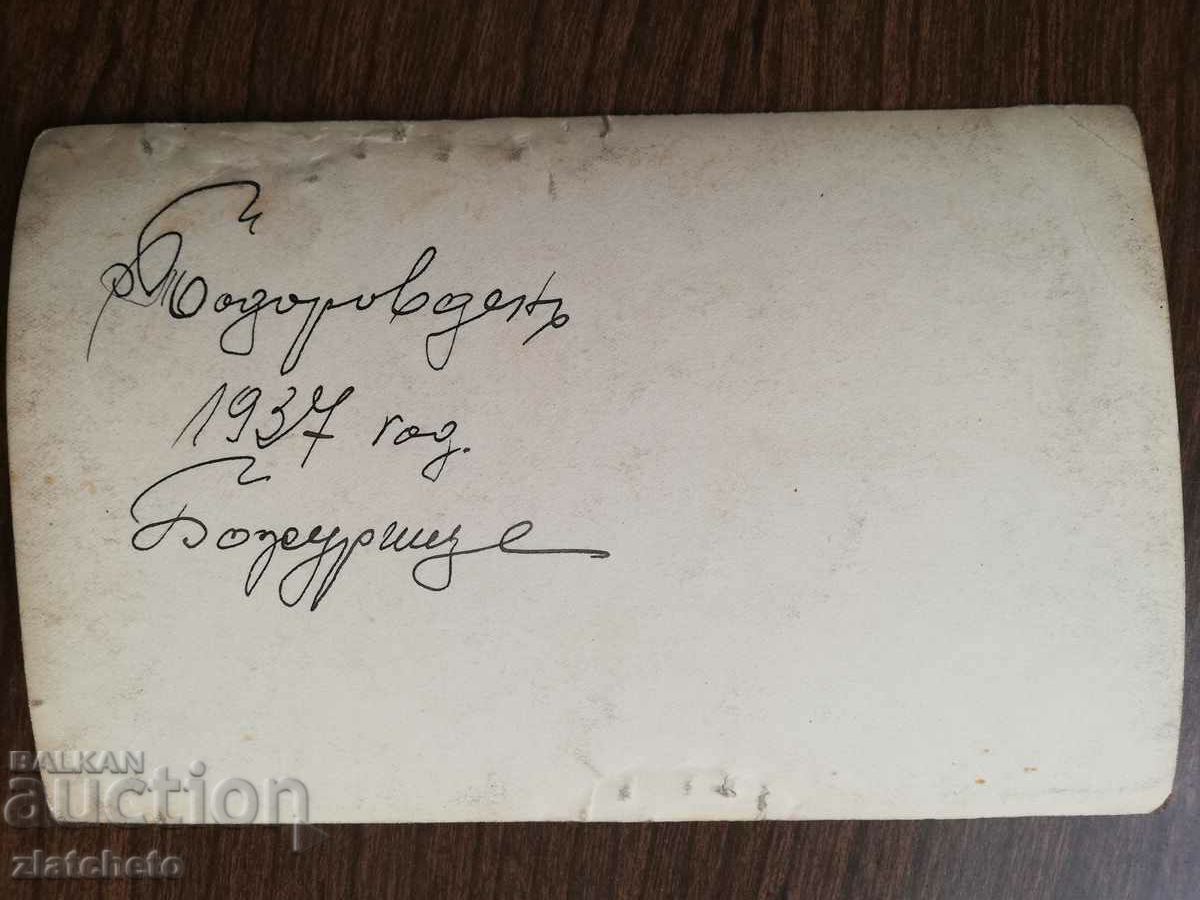 Тодоровденъ
1937 год.
Божурище
BALKAN
auction
zlatcheto